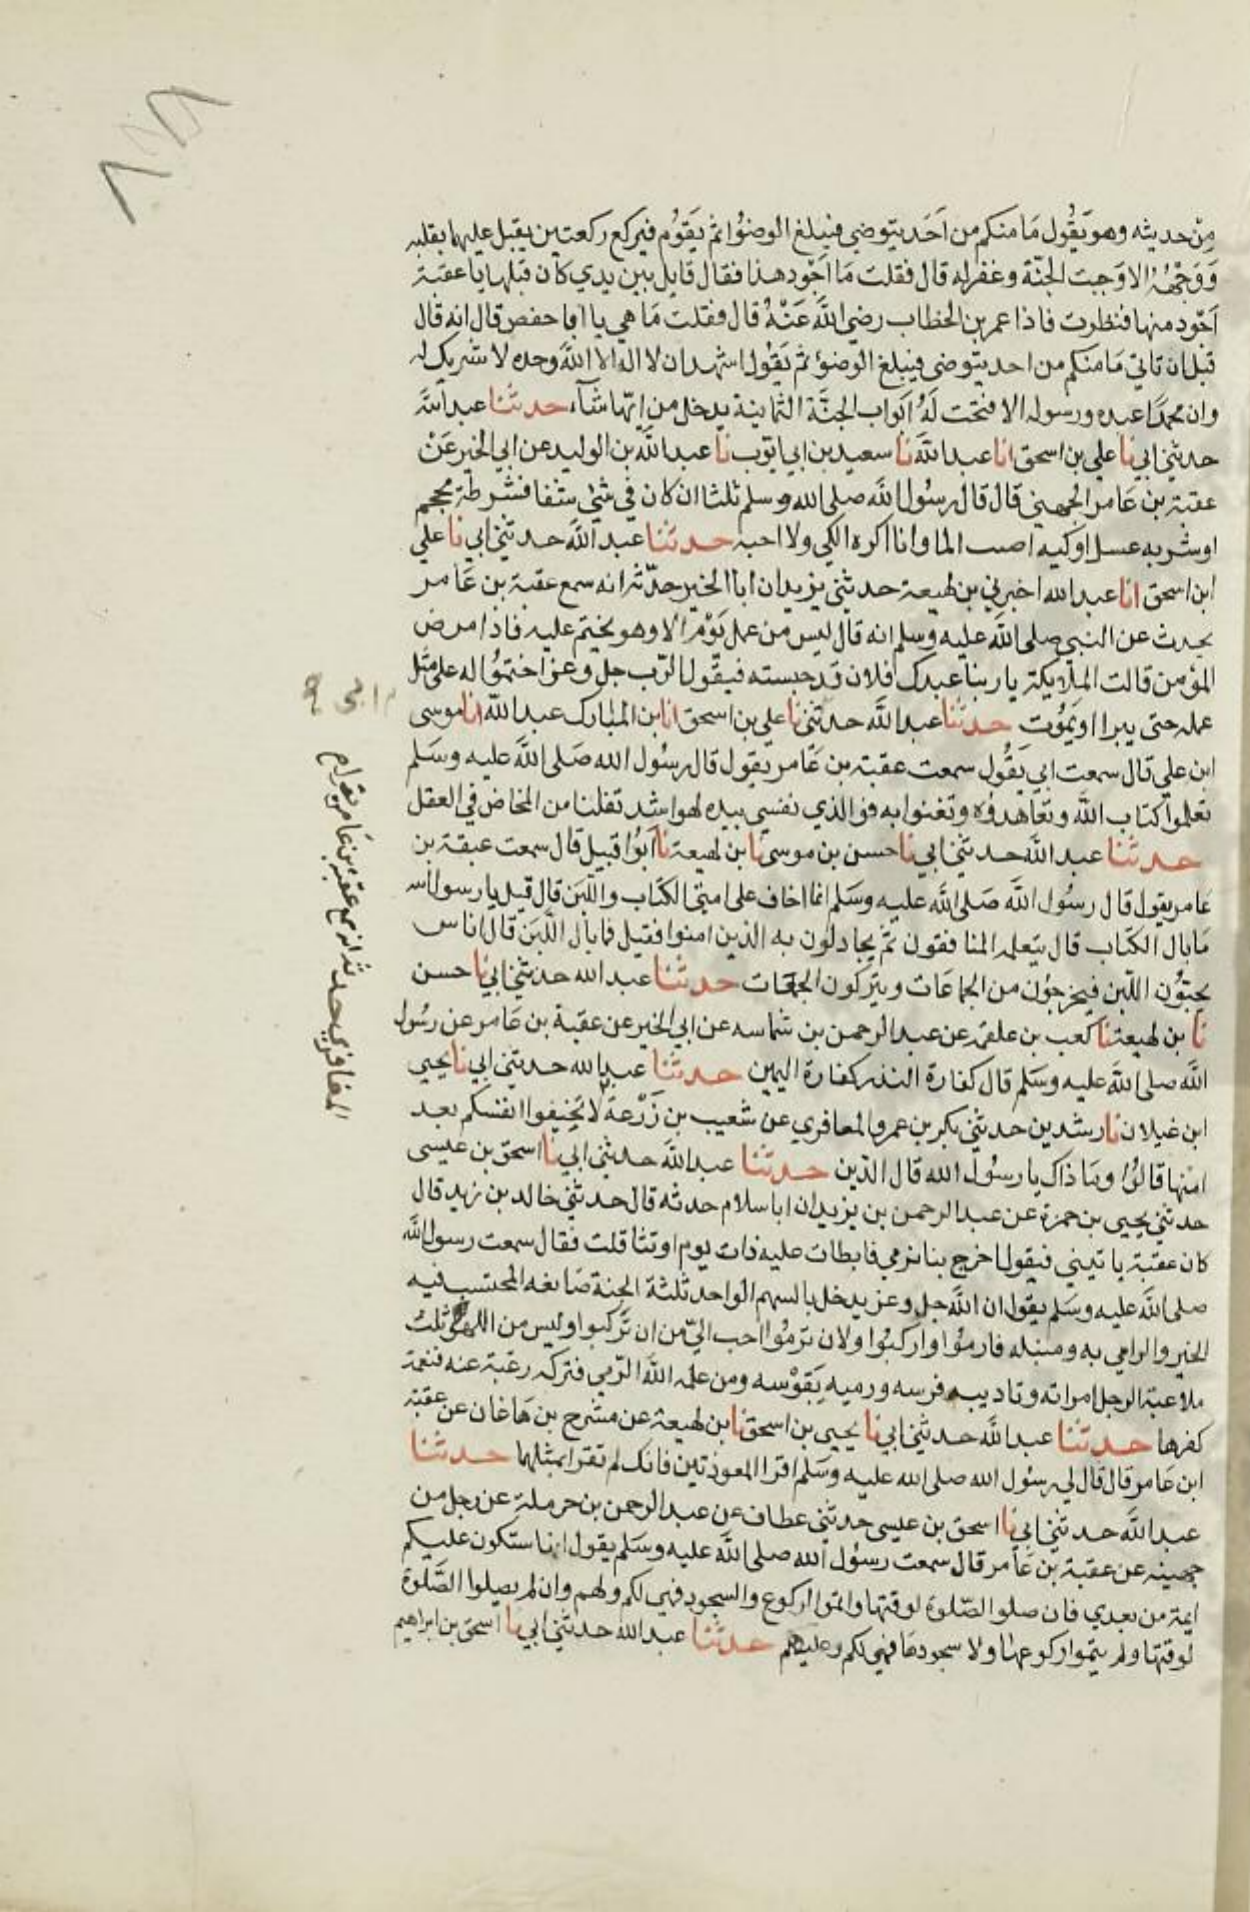 من حديثه وهو يقول ما منكم من احد يتوضي فيبلغ الوضوء ثم يقوم فيركع ركعتين يقبل عليهما بقلبه
ووجهه الا وجبت الجنة وغفر له قال فقلت ما اجود هذا فقال قايل بين يدي كان قبلها يا عقبة
اجود منها فنظرت فاذا عمر بن الخطاب رضي الله عنه قال فقلت ما هي يا ابا حفص قال انه قال
قبل ان تاتي ما منكم من احد يتوضى فيبلغ الوضوء ثم يقول اشهد ان لا اله الا الله وحده لا شريك له
وان محمدا عبده ورسوله الا فتحت له ابواب الجنة الثمانية يدخل من ايها شآء حدثنا عبد الله
حدثني ابي نا علي بن اسحق انا عبد الله نا سعيد بن ابي ايوب نا عبد الله بن الوليد عن ابي الخير عن
عقبة بن عامر الجهيني قال قال رسول الله صلى الله وسلم ثلثا ان كان في شئ شفا فشرطة محجم
او شربه عسل او كيه اصب الما وانا اكره الكي ولا احبه حدثنا عبد الله حدثني ابي نا علي
ابن اسحق انا عبد الله اخبرني بن لهيعة حدثني يزيد ان ابا الخير حدثه انه سمع عقبة بن عامر
يحدث عن النبي صلى الله عليه وسلم انه قال ليس من عمل يوم الا وهو يختم عليه فاذا مرض
المؤمن قالت الملايكة يا ربنا عبدك فلان قد حبسته فيقول الرب جل وعز اختموا له على مثل
عمله حتى يبرا او يموت حدثنا عبد الله حدثني نا علي بن اسحق انا بن المبارك عبد الله انا موسى
ابن علي قال سمعت ابي يقول سمعت عقبة بن عامر يقول قال رسول الله صلى الله عليه وسلم
تعلموا كتاب الله وتعاهدوه وتغنوا به فوالذي نفسي بيده لهو اشد تفلنا من المخاض في العقل
حدثنا عبد الله حدثني ابي نا حسن بن موسى نا بن لهيعة نا ابوا قبيل قال سمعت عبقة بن
عامر يقول قال رسول الله صلى الله عليه وسلم انما اخاف على امتي الكتاب واللبن قال قيل يا رسول الله
ما بال الكتاب قال يتعلمه المنافقون ثم يجادلون به الذين امنوا فقيل فما بال اللبن قال اناس
يحبون اللبن فيخرجون من الجماعات ويتركون الجمعات حدثنا عبد الله حدثني ابي نا حسن
نا بن لهيعة نا كعب بن علقمه عن عبد الرحمن بن شماسه عن ابي الخير عن عقبة بن عامر عن رسول
الله صلى الله عليه وسلم قال كفارة النذر كفارة اليمين حدثنا عبد الله حدثني ابي نا يحيى
ابن غيلان نا رشدين حدثني بكر بن عمرو المعافري عن شعيب بن زرعة لا تخيفوا انفسكم بعد
امنها قالوا وما ذاك يا رسول الله قال الدين حدثنا عبد الله حدثني ابي نا اسحق بن عيسى
حدثني يحيى بن حمزة عن عبد الرحمن بن يزيد ان ابا سلام حدثه قال حدثني خالد بن زيد قال
كان عقبة ياتيني فيقول اخرج بنا نرمي فابطات عليه ذات يوم او تثاقلت فقال سمعت رسول الله
صلى الله عليه وسلم يقول ان الله جل وعز يدخل بالسهم الواحد ثلثة الجنة صانعه المحتسب فيه
الخير والرامي به ومنبله فارموا واركبوا ولان ترموا احب الي من ان تركبوا وليس من اللهو ثلث
ملاعبة الرجل امراته وتاديبه فرسه ورميه بقوسه ومن علمه الله الرمي فتركه رغبة عنه فنعمة
كفرها حدثنا عبد الله حدثني ابي نا يحيى بن اسحق نا بن لهيعة عن مشرح بن هاعان عن عقبة
ابن عامر قال قال لي رسول الله صلى الله عليه وسلم اقرا المعوذتين فانك لم تقرا بمثلهما حدثنا
عبد الله حدثني ابي نا اسحق بن عيسى حدثني عطاف عن عبد الرحمن بن حرملة عن رجل من
جهينه عن عقبة بن عامر قال سمعت رسول الله صلى الله عليه وسلم يقول انها ستكون عليكم
ايمة من بعدي فان صلوا الصلوة لوقتها واتموا الركوع والسجود فهي لكم ولهم وان لم يصلوا الصلوة
لوقتها ولم يتموا ركوعها ولا سجودها فهي لكم وعليهم حدثنا عبد الله حدثني ابي نا اسحق بن ابراهيم
المعافري حدثه انه سمع عقبة بن عامر يقول